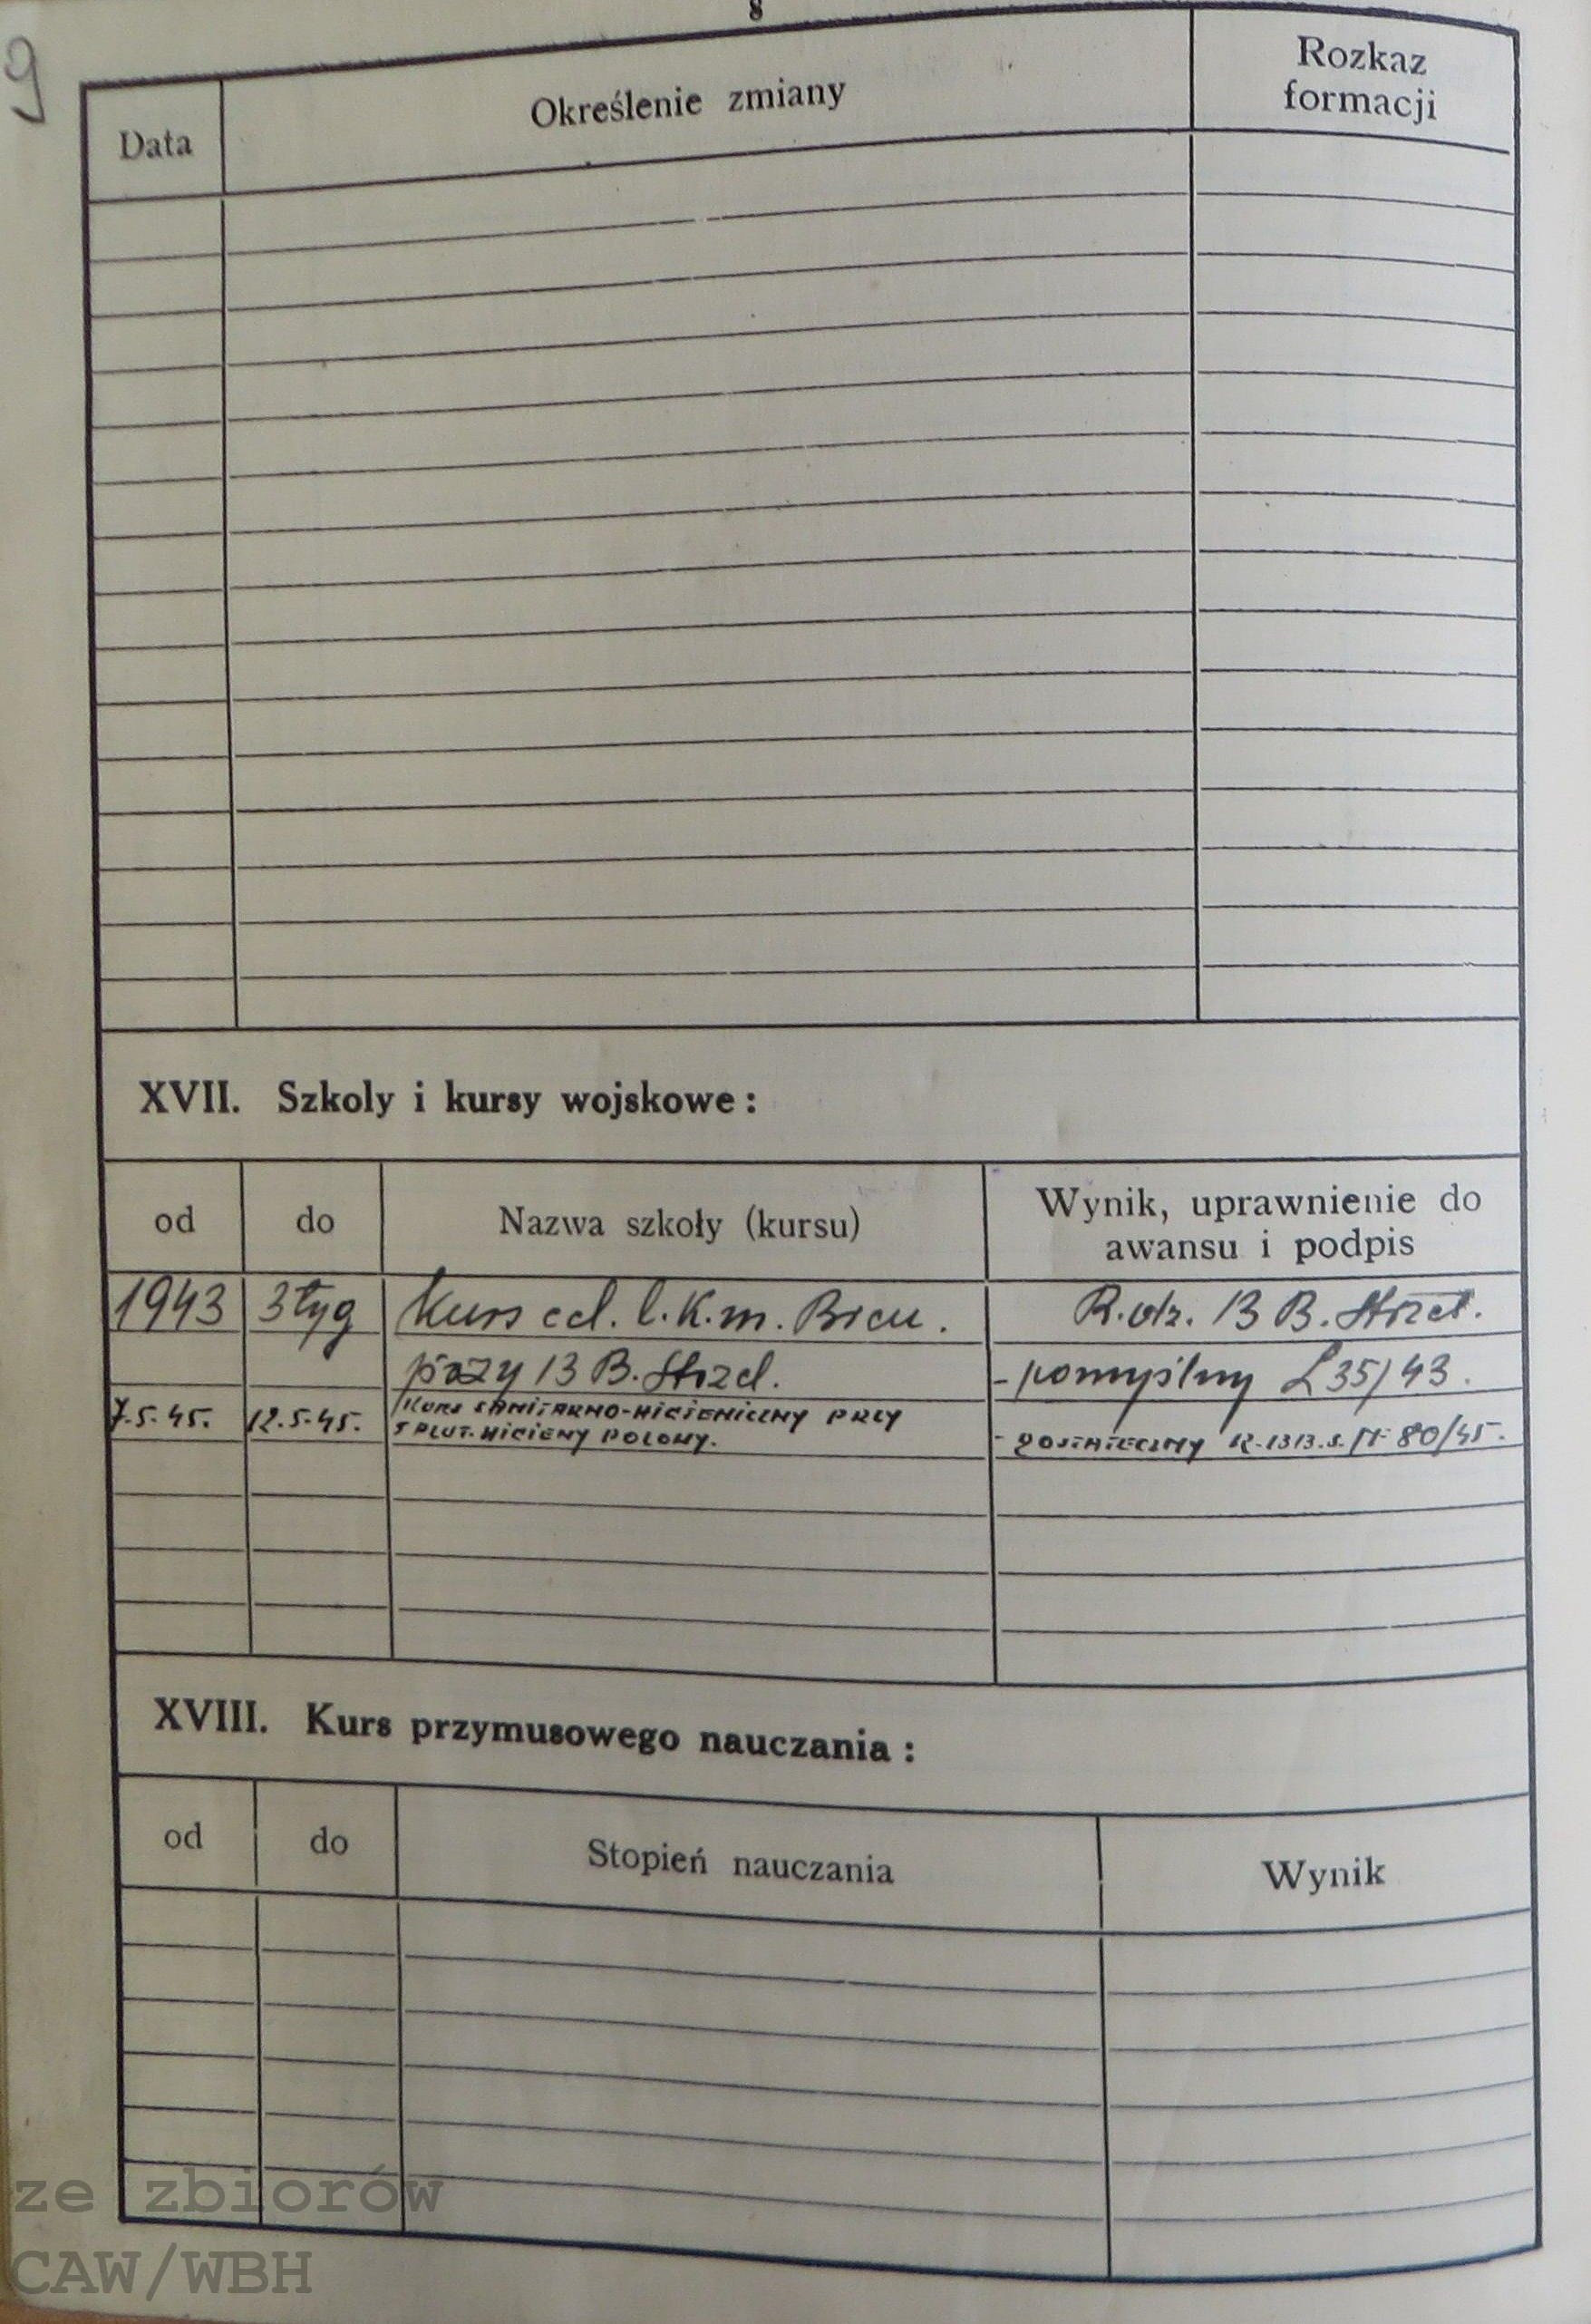 8
9
Data
Określenie zmiany
Rozkaz
formacji
XVII. Szkoly i kursy wojskowe:
od
do
Nazwa szkoły (kursu)
Wynik, uprawnienie do
awansu i podpis
1943
3 tyg
Kurs cel. l.k.m. Bren.
R. dz. 13 B. Strzel.
przy 13 B. Strzel.
- pomyślny L 35/43.
7.5.45.
12.5.45.
KURS SANITARNO-HIGIENICZNY PRZY
5 PLUT. HIGIENY POLOWY.
- DOSTATECZNY R. 13 B. S. Nr 80/45.
XVIII. Kurs przymusowego nauczania:
od
do
Stopień nauczania
Wynik
ze zbiorów
CAW/WBH